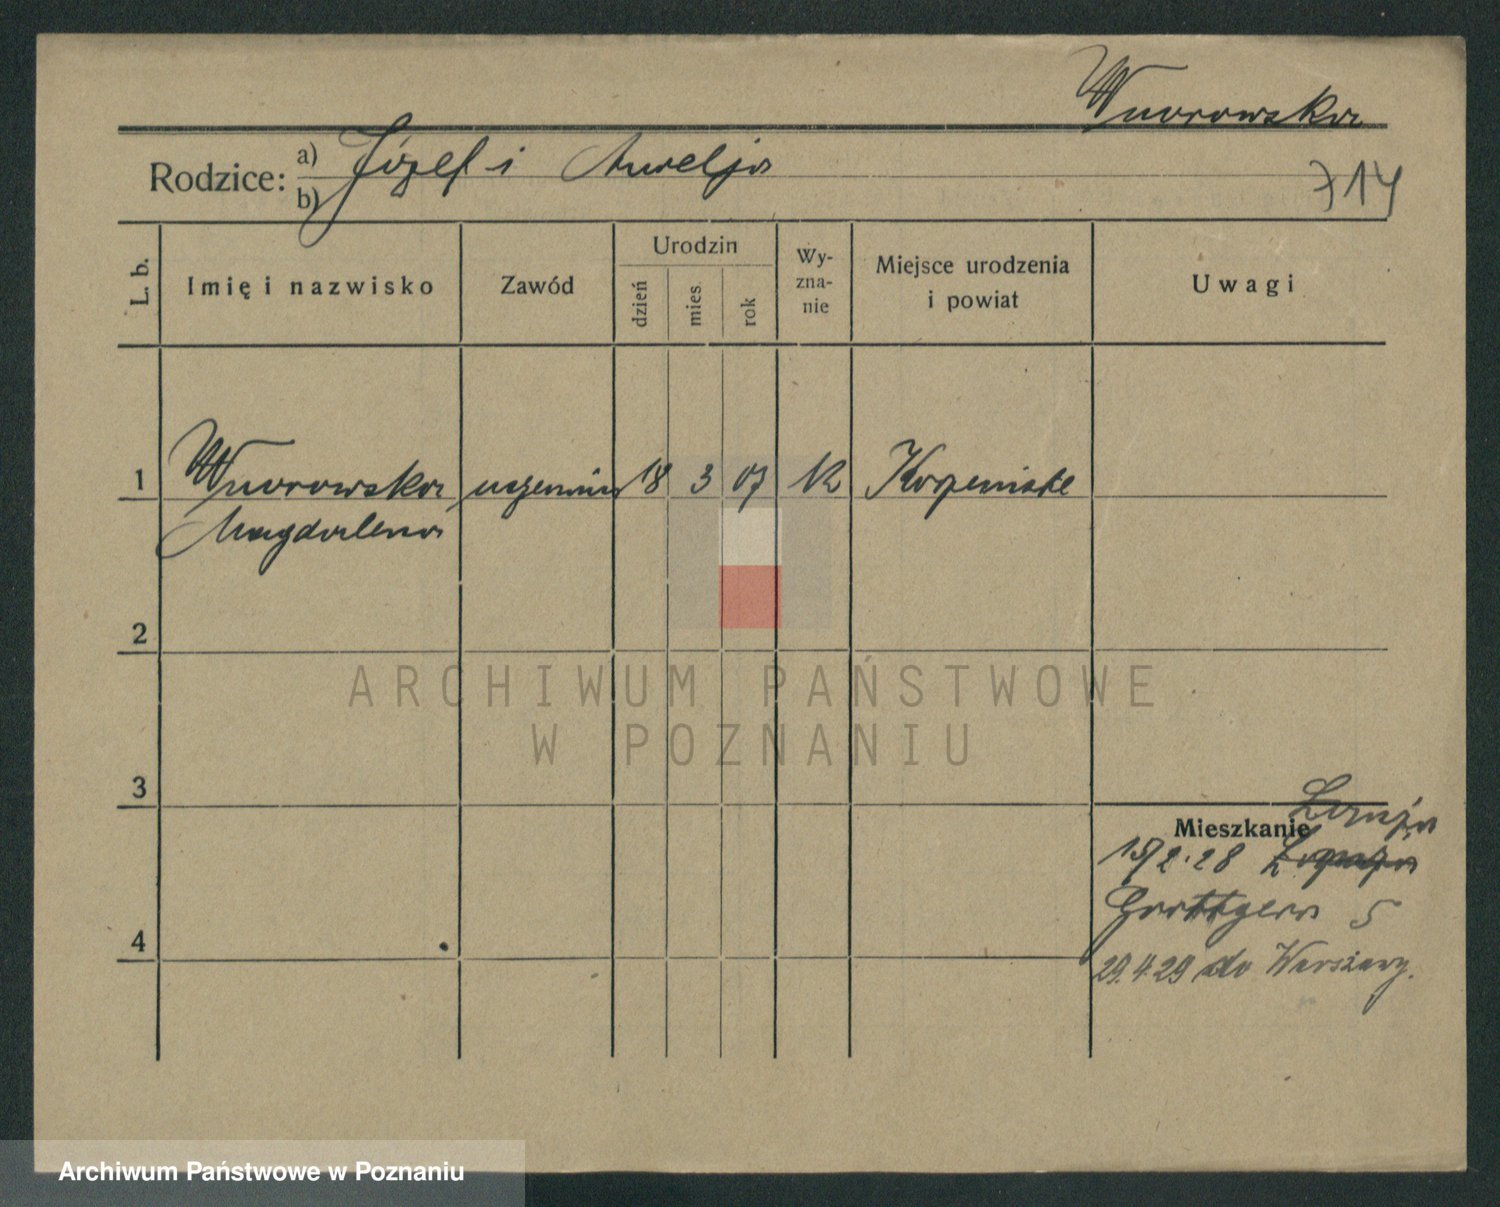 Wnorowska
Rodzice: a) Józef i Aurelja
b)
714
L. b.
Imię i nazwisko
Zawód
Urodzin
dzień
mies.
rok
Wy-
zna-
nie
Miejsce urodzenia
i powiat
Uwagi
1 Wnorowska uczennica 18 3 07 rk
Magdalena
2
ARCHIWUM PAŃSTWOWE
W POZNANIU
3
Mieszkanie
15/2.28
Grottgera 5
4
29.4.29 do Warszawy.
Archiwum Państwowe w Poznaniu